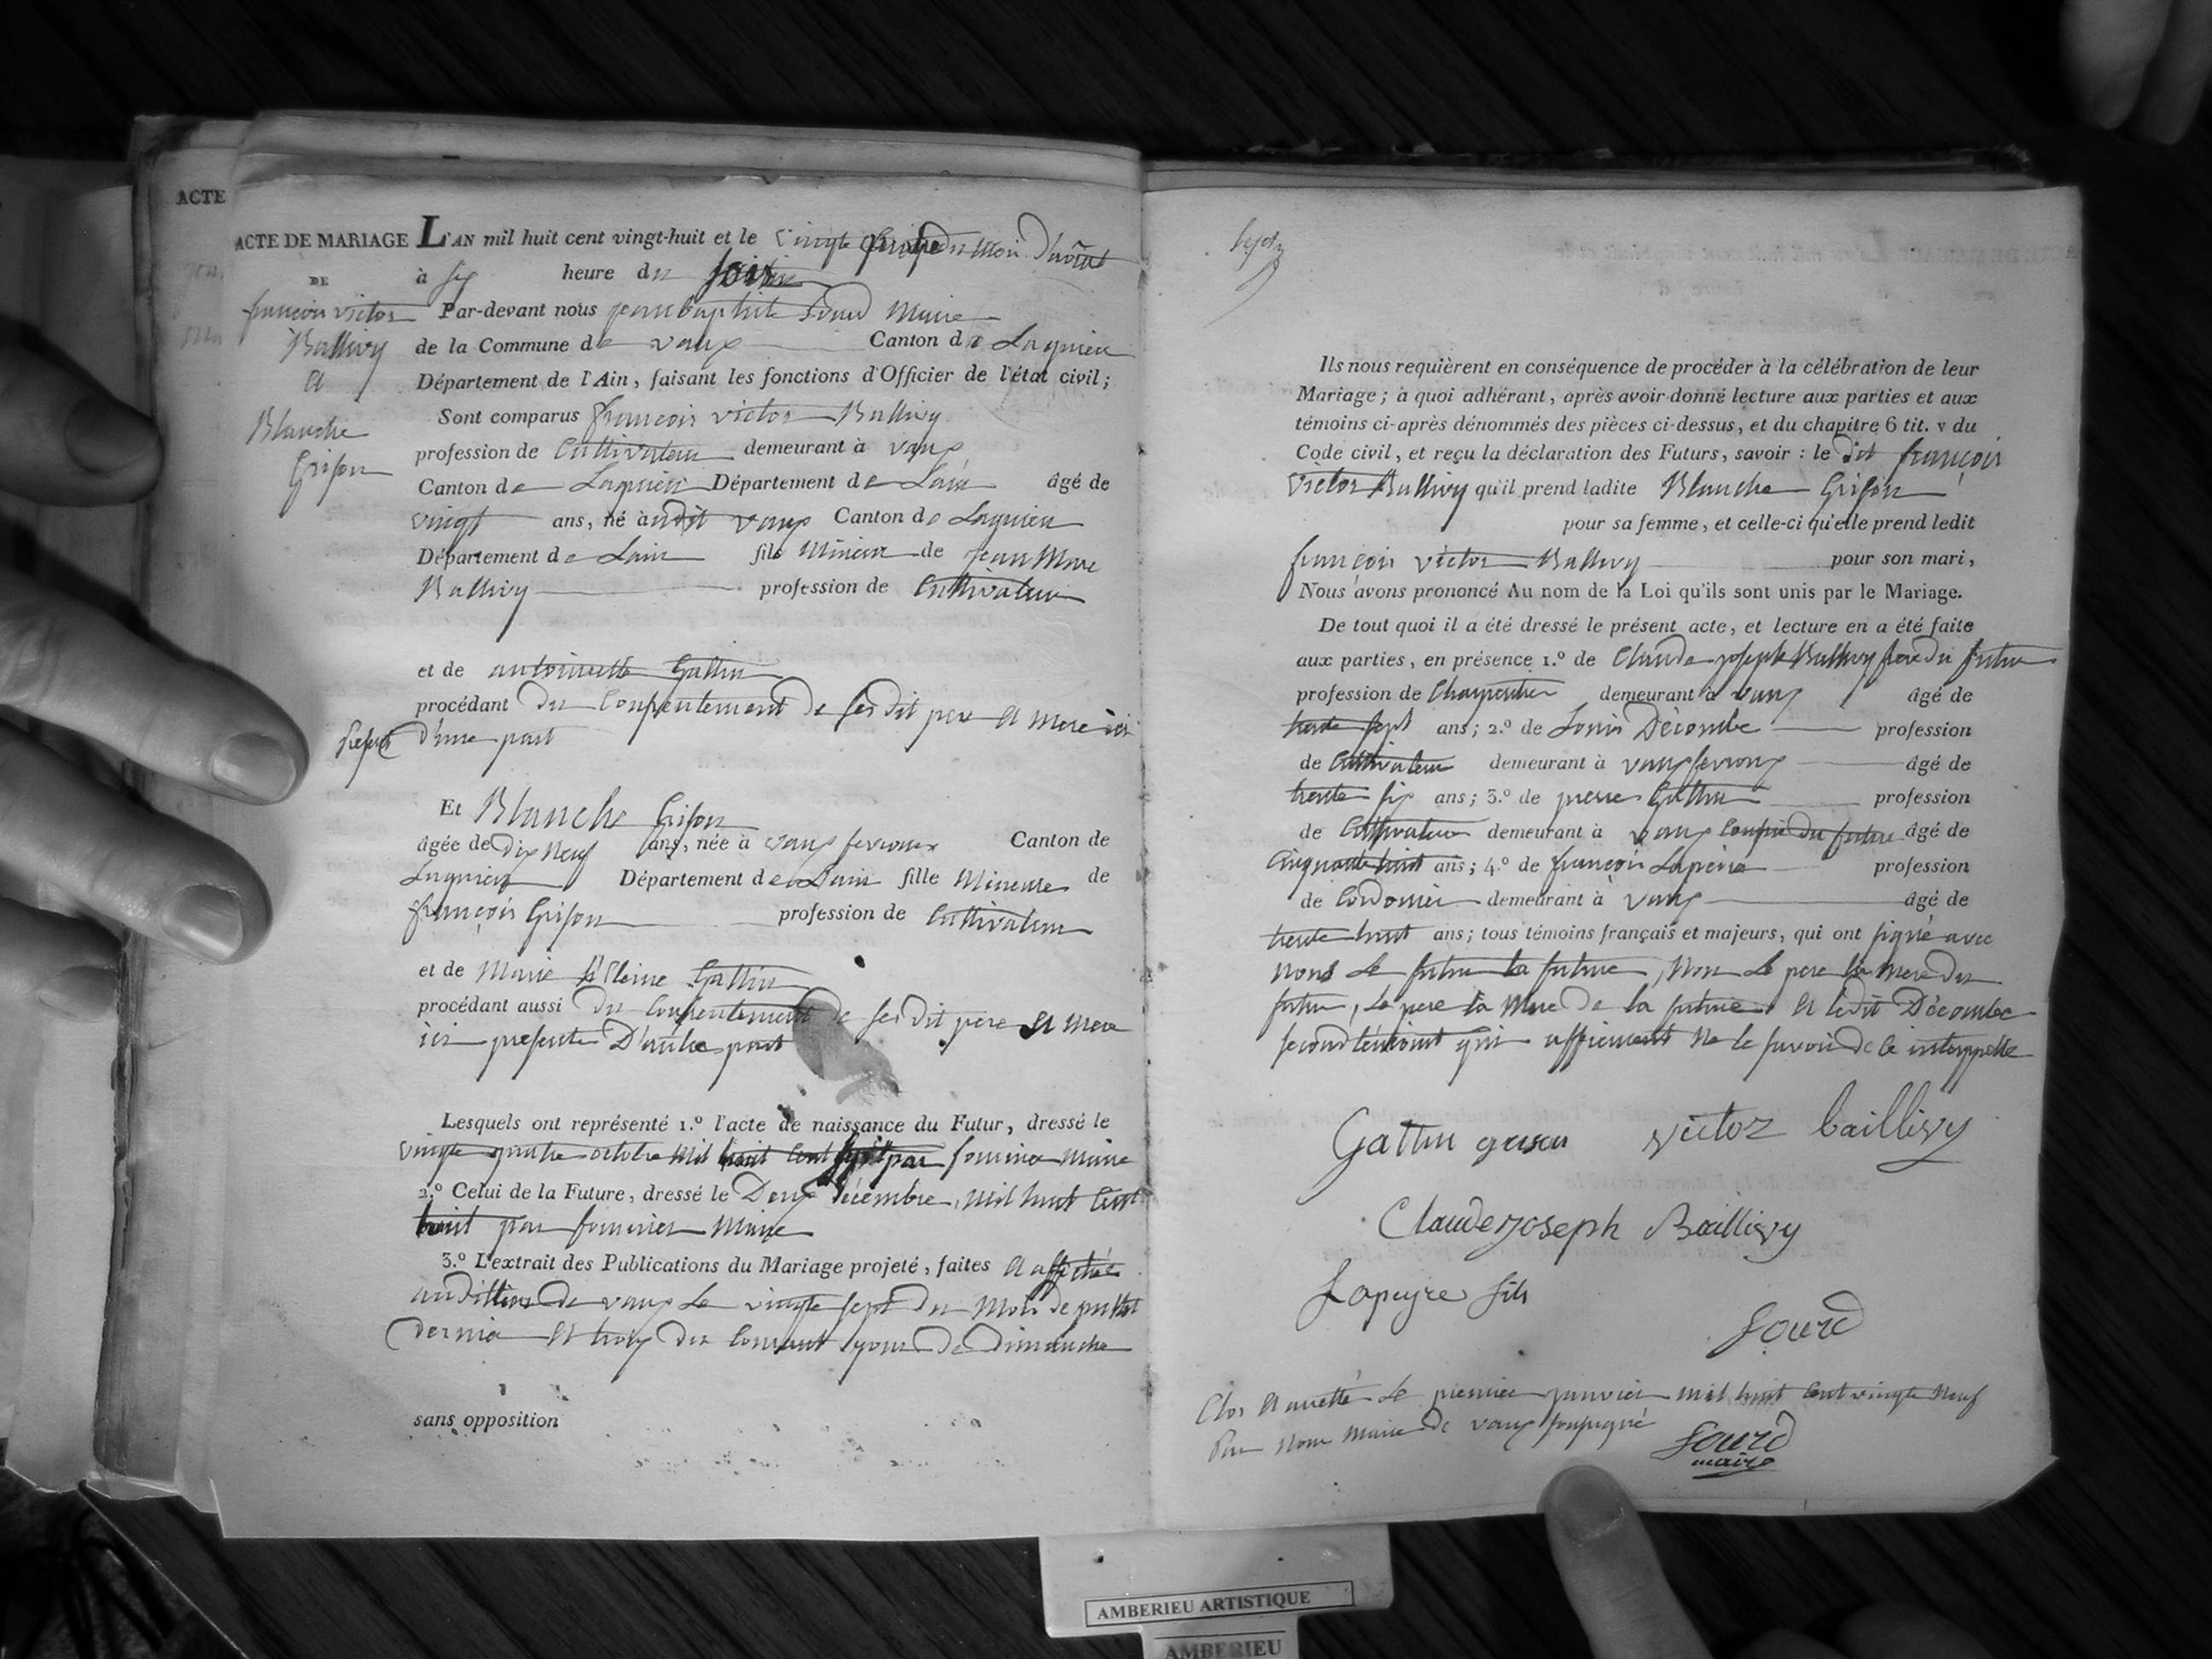 ACTE
ACTE DE MARIAGE
DE
françois victor
Ballivy
et
Blanche
Grison
L'AN mil huit cent vingt-huit et le vingt du mois d'août
à six heure du soir
Par-devant nous jean baptiste Sourd Maire
de la Commune de vaux Canton de Lagnieu
Département de l'Ain, faisant les fonctions d'Officier de l'état civil;
Sont comparus françois victor Ballivy
profession de Cultivateur demeurant à vaux
Canton de Lagnieu Département de Lain âgé de
vingt ans, né audit vaux Canton de Lagnieu
Département de Lain fils Mineur de jean Marc
Ballivy profession de Cultivateur
et de antoinette Gattin
procédant du Consentement de ses dit pere et mere ici
présent d'une part
Et Blanche Grison
âgée de dix Neuf ans, née à vaux fevroux Canton de
Lagnieu Département de Lain fille Mineure de
françois Grison profession de Cultivateur
et de Marie Gattin
procédant aussi du Consentement de ses dit pere et mere
ici présente D'autre part
Lesquels ont représenté 1.º l'acte de naissance du Futur, dressé le
vingt quatre octobre mil huit cent sept par fournier maire
2.º Celui de la Future, dressé le Deux décembre mil huit Cent
huit par fournier Maire
3.º L'extrait des Publications du Mariage projeté, faites et affiché
audit lieu de vaux Le vingt sept du Mois de juillet
dernier et trois du Courant jour de dimanche
sans opposition
Ils nous requièrent en conséquence de procéder à la célébration de leur
Mariage; à quoi adhérant, après avoir donné lecture aux parties et aux
témoins ci-après dénommés des pièces ci-dessus, et du chapitre 6 tit. v du
Code civil, et reçu la déclaration des Futurs, savoir: le dit françois
Victor Ballivy qu'il prend ladite Blanche Grison
pour sa femme, et celle-ci qu'elle prend ledit
françois victor Ballivy pour son mari,
Nous avons prononcé Au nom de la Loi qu'ils sont unis par le Mariage.
De tout quoi il a été dressé le présent acte, et lecture en a été faite
aux parties, en présence 1.º de Claude joseph Ballivy frere du futur
profession de Charpentier demeurant à vaux âgé de
trente sept ans; 2.º de Louis Décombe profession
de Cultivateur demeurant à vaux fevroux âgé de
trente six ans; 3.º de pierre Gattin profession
de Cultivateur demeurant à vaux Cousin du futur âgé de
Cinquante huit ans; 4.º de françois Lapeire profession
de Cordonnier demeurant à vaux âgé de
trente huit ans; tous témoins français et majeurs, qui ont signé avec
nous Le futur la future, Non Le pere la mere du
futur, Le pere la Mere de la future et ledit Décombe
second témoint qui ont affirment Ne le savoir de ce interppelle
Gattin grison victor baillivy
Claude joseph Baillivy
Lapeyre fils
Sourd
Clos et arretté Le premier janvier mil huit Cent vingt Neuf
Par Nous Maire de vaux soussigné
Sourd
maire
AMBERIEU ARTISTIQUE
AMBERIEU